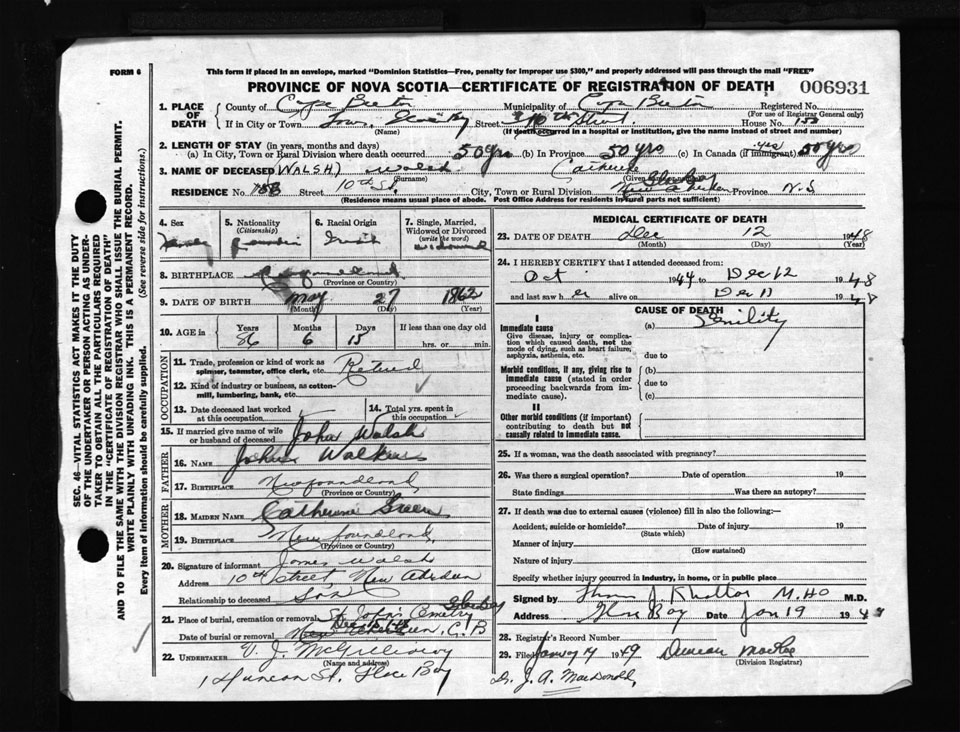 FORM 6
This form if placed in an envelope, marked "Dominion Statistics—Free, penalty for improper use $300," and properly addressed will pass through the mail "FREE"
PROVINCE OF NOVA SCOTIA—CERTIFICATE OF REGISTRATION OF DEATH 006931
1. PLACE OF DEATH
County of Cape Breton Municipality of Cape Breton Registered No.
(For use of Registrar General only)
If in City or Town Town, Glace Bay Street 10th Street House No. 158
(Name) (If death occurred in a hospital or institution, give the name instead of street and number)
2. LENGTH OF STAY (in years, months and days)
(a) In City, Town or Rural Division where death occurred 50 yrs (b) In Province 50 yrs (c) In Canada (if immigrant) yes 50 yrs
3. NAME OF DECEASED (WALSH) Walsh Catherine
(Surname) (Given
RESIDENCE No. 158 Street 10th St. City, Town or Rural Division New Aberdeen Glace Bay Province N.S
(Residence means usual place of abode. Post Office Address for residents in rural parts not sufficient)
4. Sex
5. Nationality (Citizenship)
6. Racial Origin
7. Single, Married, Widowed or Divorced (write the word)
Irish widowed
8. BIRTHPLACE Newfoundland
(Province or Country)
9. DATE OF BIRTH May 27 1862
(Month) (Day) (Year)
10. AGE in Years Months Days If less than one day old
86 6 15 hrs. or min.
OCCUPATION
11. Trade, profession or kind of work as spinner, teamster, office clerk, etc. Retired
12. Kind of industry or business, as cotton-mill, lumbering, bank, etc.
13. Date deceased last worked at this occupation
14. Total yrs. spent in this occupation
15. If married give name of wife or husband of deceased John Walsh
FATHER
16. NAME
17. BIRTHPLACE Newfoundland
(Province or Country)
MOTHER
18. MAIDEN NAME Catherine Green
19. BIRTHPLACE Newfoundland
(Province or Country)
20. Signature of informant James Walsh
Address 10th Street, New Aberdeen
Relationship to deceased Son
21. Place of burial, cremation or removal St. John's Cemetery Glace Bay
Date of burial or removal New Aberdeen, C.B
22. UNDERTAKER V. J. McGillivray
(Name and address)
St, Glace Bay
MEDICAL CERTIFICATE OF DEATH
23. DATE OF DEATH Dec 12 1948
(Month) (Day) (Year)
24. I HEREBY CERTIFY that I attended deceased from:
Oct 1944 to Dec 12 1948
and last saw her alive on Dec 11 1948
CAUSE OF DEATH
I
Immediate cause
Give disease, injury or complication which caused death, not the mode of dying, such as heart failure, asphyxia, asthenia, etc.
(a) Senility
due to
Morbid conditions, if any, giving rise to immediate cause (stated in order proceeding backwards from immediate cause).
(b)
due to
(c)
II
Other morbid conditions (if important) contributing to death but not causally related to immediate cause.
25. If a woman, was the death associated with pregnancy?
26. Was there a surgical operation? Date of operation 19
State findings Was there an autopsy?
27. If death was due to external causes (violence) fill in also the following:—
Accident, suicide or homicide? Date of injury 19
(State which)
Manner of injury
(How sustained)
Nature of injury
Specify whether injury occurred in industry, in home, or in public place
Signed by M.HO M.D.
Address Glace Bay Date Jan 19 194
28. Registrar's Record Number
29. Filed January 19 1949 Duncan MacRae
(Division Registrar)
Dr. J. A. MacDonald,
SEC. 46—VITAL STATISTICS ACT MAKES IT THE DUTY
OF THE UNDERTAKER OR PERSON ACTING AS UNDER-
TAKER TO OBTAIN ALL THE PARTICULARS REQUIRED
IN THE "CERTIFICATE OF REGISTRATION OF DEATH"
AND TO FILE THE SAME WITH THE DIVISION REGISTRAR WHO SHALL ISSUE THE BURIAL PERMIT.
WRITE PLAINLY WITH UNFADING INK. THIS IS A PERMANENT RECORD.
Every item of information should be carefully supplied. (See reverse side for instructions.)